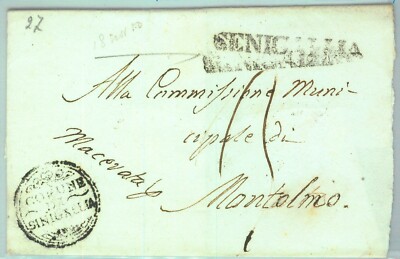 27
SENIGALLIA
Alla Commissione Muni-
cipale di
Macerata p
Montolmo.
COMUNE
DI
SINIGAGLIA